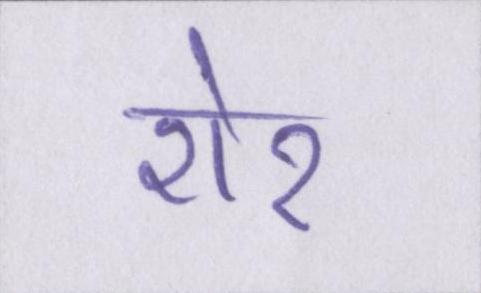 शेर